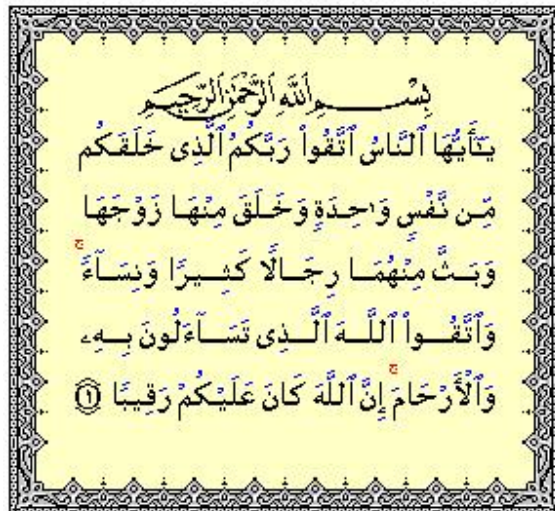 بِسْمِ ٱللَّهِ ٱلرَّحْمَٰنِ ٱلرَّحِيمِ
يَٰٓأَيُّهَا ٱلنَّاسُ ٱتَّقُوا۟ رَبَّكُمُ ٱلَّذِى خَلَقَكُم
مِّن نَّفْسٍ وَٰحِدَةٍ وَخَلَقَ مِنْهَا زَوْجَهَا
وَبَثَّ مِنْهُمَا رِجَالًا كَثِيرًا وَنِسَآءً ۚ
وَٱتَّقُوا۟ ٱللَّهَ ٱلَّذِى تَسَآءَلُونَ بِهِۦ
وَٱلْأَرْحَامَ ۚ إِنَّ ٱللَّهَ كَانَ عَلَيْكُمْ رَقِيبًا ١